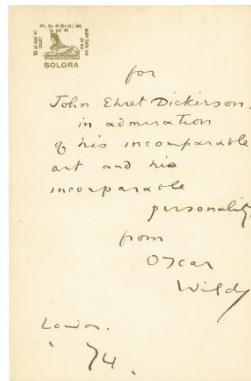 SOLORA
for
John Ehret Dickerson,
in admiration
of his incomparable
art and his
incorparable
personality
from
Oscar
Wilde
London.
'74.